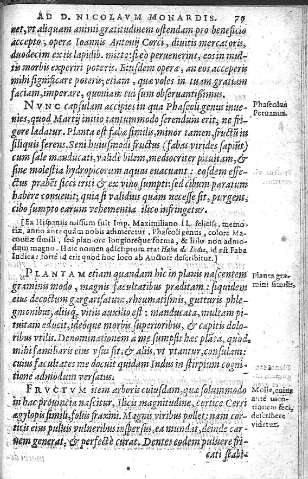 AD D. NICOLAVM MONARDIS. 79
net, vt aliquam animi gratitudinem ostendam pro beneficio
accepto, opera Ioannis Antonij Corci, diuitis mercatoris,
duodecim exit lapidis mitto: si eò peruenerint, eos in multis
morbis experiri poteris. Eiusdem opera, an eos acceperis
mihi significare poteris; etiam, qua voles in re tuam gratiam
faciam, imperare, quoniam tui sum obseruantissimus.
NVNC capsulam accipies in qua Phaseoli genus inuenies,
quod Martij initio tantummodo serendum erit, ne frigore
ladatur. Planta est faba similis, minor tamen, fructū in
siliquis ferens. Semi huiusmodi fructus (fabas virides sapiut)
cum sale manducati, valide bilem, mediocriter pituitam, &
sine molestia hydropicorum aquas euacuant: eosdem effectus
prabet sicci triti & ex vino sumpti: sed cibum paratum
habere conuenit, quia si validius quàm necesse sit, purgent,
cibo sumpto earum vehementia illico infringetur.
Phaseolus
Peruanus.
[Ex Hispania missum fuit Imp. Maximiliano II. felicis. memoriæ,
anno ante quàm nobis adferretur, Phaseoli genus, colore Manucis
simili, sed plano ore longioréque forma, & hilo non admodum
magno. Haic nomen adscriptum erat Faba de India, id est Faba
Indica: forte id erit quod hoc loco ab Auctore describitur.]
PLANTAM etiam quandam hic in planis nascentem
graminis modo, magnis facultatibus præditam: siquidem
eius decoctum gargarisatum, rheumatismis, gutturis phlegmonibus,
aliisq. vitiis auxilio est: manducata, multam pituitam
educit, ideóque morbis superioribus, & capitis doloribus
vtilis. Denominationem à me sumpsit hæc plata, quod
mihi familiaris eius vsu sit, & alij, vt vtantur, consulam:
cuius facultates me docuit quidam Indus in stirpium cognitione
admodum versatus.
Planta gramini
similis.
FRVCTVM item arboris cuiusdam, quæ solummodo
in hac prouincia nascitur, ilicis magnitudine, cortice Cerri
ægylopis simili, folio fraxini. Magnis viribus pollet: nam corticis
eius puluis vulneribus inspersus, ea mundat, deinde carnem
generat, & perfectè curat. Dentes eodem puluere fricati
stabi-
Molle, cuius
antè
describere
videtur.